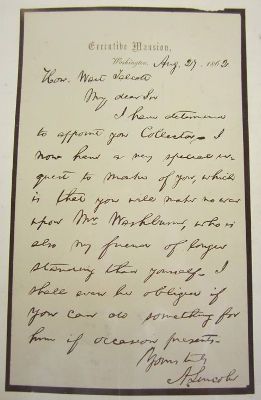 Executive Mansion,
Washington, Aug. 27, 1862
Hon. Wait Talcott
My dear Sir
I have determined
to appoint you Collector. I
now have a very special re-
quest to make of you, which
is that you will make no war
upon Mr. Washburne, who is
also my friend of longer
standing than yourself. I
shall even be obliged if
you can do something for
him if occasion presents.
Yours truly
A. Lincoln